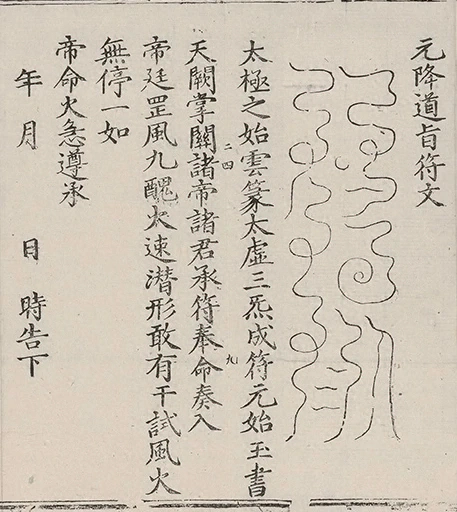 元降道旨符文
太極之始雲篆太虛三炁成符元始玉書
天闕掌關諸帝諸君承符奉命奏入
二四
九
帝廷罡風九醜火速潛形敢有干試風火
無停一如
帝命火急遵承
年月 日 時告下